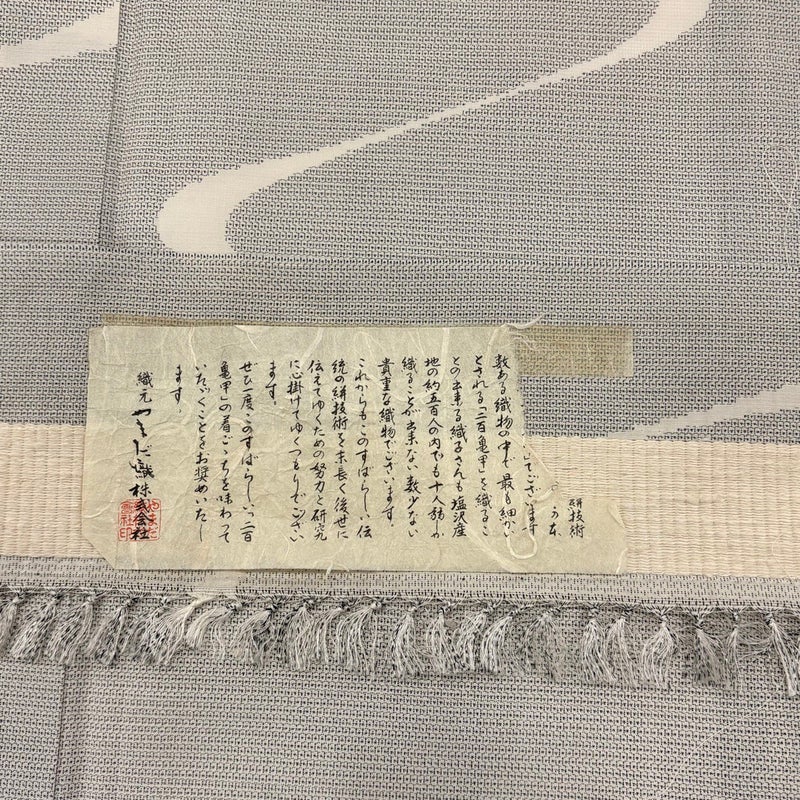 絣技術
してございます
数ある織物の中で最も細かい
とされる「二百亀甲」を織るこ
との出来る織子さんも塩沢産
地の約五百人の内でも十人弱しか
織ることが出来ない数少ない
貴重な織物でございます。
これからもこのすばらしい伝
統の絣技術を末長く後世に
伝えてゆくための努力と研究
に心掛けてゆくつもりでござい
ます。
ぜひ一度このすばらしい「二百
亀甲」の着ごこちを味わって
いたゞくことをお奨めいたし
ます。
織元 やまだ織株式会社